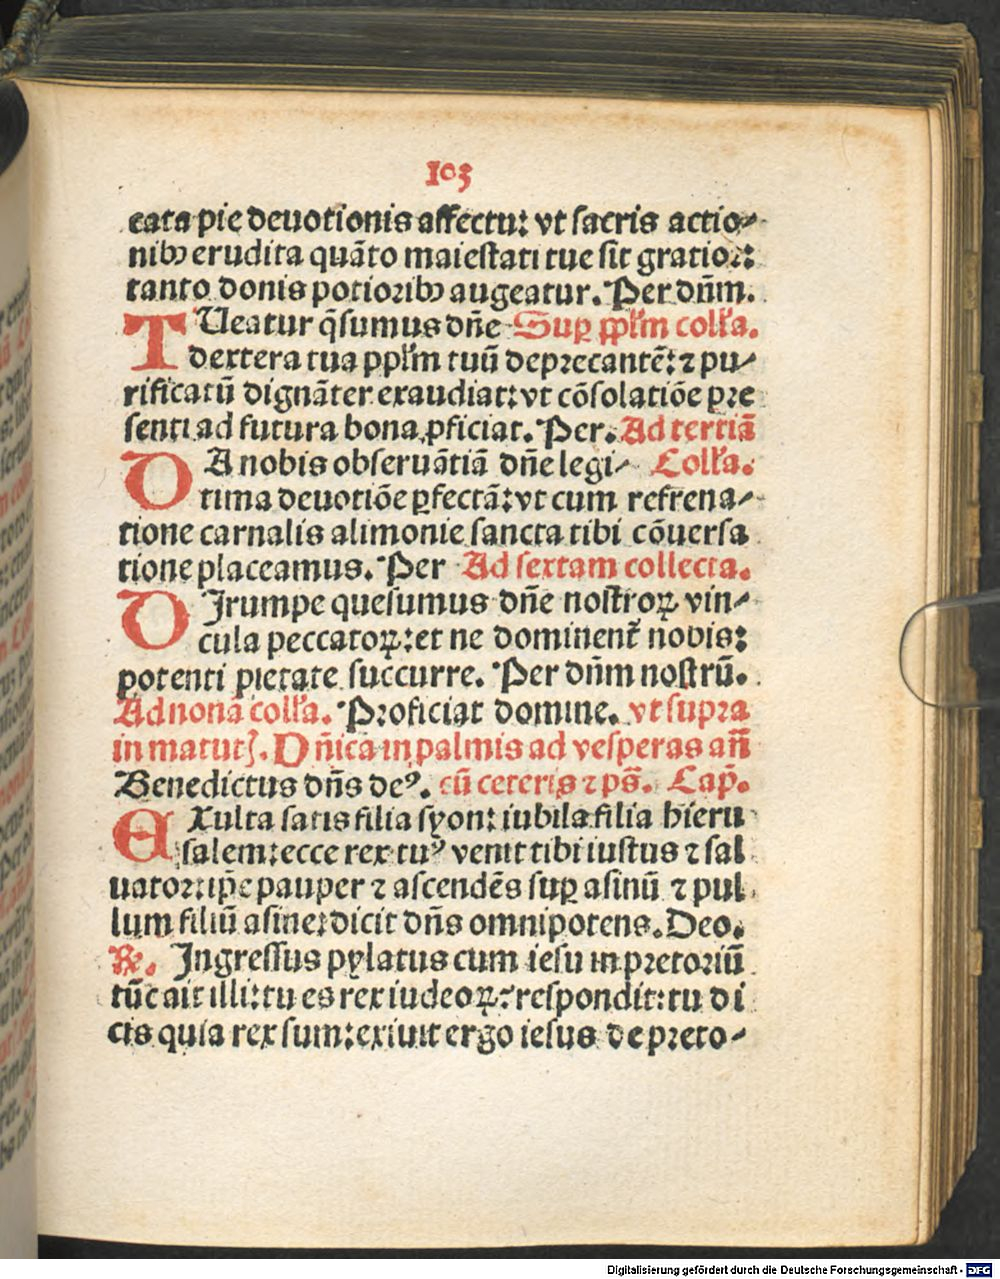 103
cata pie deuotionis affectu: vt sacris actio-
nibꝰ erudita quãto maiestati tue sit gratior:
tanto donis potioribꝰ augeatur. Per dñm.
TUeatur q̃sumus dñe Suꝑ ꝓpłm coll'a.
dextera tua ppłm tuũ deprecantẽ: ⁊ pu-
rificatũ dignãter exaudiat: vt cõsolatiõe pre
senti ad futura bona ꝓficiat. Per. Ad tertiã
DA nobis obseruãtiã dñe legi- Coll'a.
tima deuotiõe ꝑfectã: vt cum refrena-
tione carnalis alimonie sancta tibi cõuersa
tione placeamus. Per Ad sextam collecta.
DJrumpe quesumus dñe nostroꝝ vin-
cula peccatoꝝ: et ne dominent᷑ nobis:
potenti pietate succurre. Per dñm nostrũ.
Ad nonã coll'a. Proficiat domine. vt supra
in matutꝭ. Dñica in palmis ad vesperas añ
Benedictus dñs deꝰ. cũ ceteris ⁊ ps̃. Cap̃.
EXulta satis filia syon: iubila filia hieru
salem: ecce rex tuꝰ venit tibi iustus ⁊ sal
uator: ip̃e pauper ⁊ ascendẽs suꝑ asinũ ⁊ pul
lum filiũ asine: dicit dñs omnipotens. Deo.
℞. Jngressus pylatus cum iesu in pretoriũ
tũc ait illi: tu es rex iudeoꝝ: respondit: tu di
cis quia rex sum: exiuit ergo iesus de preto-
Digitalisierung gefördert durch die Deutsche Forschungsgemeinschaft - DFG